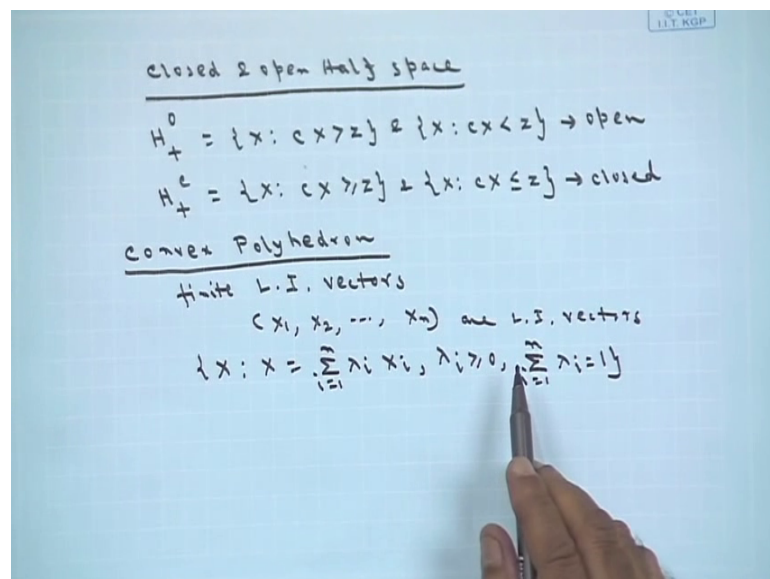 © CET
I.I.T. KGP
Closed & open Half space
H₊⁰ = {x: cx>z} & {x: cx<z} → open
H₊ᶜ = {x: cx ≥ z} & {x: cx ≤ z} → closed
Convex Polyhedron
finite L.I. vectors
(x₁, x₂, ..., xₙ) are L.I. vectors
{x: x = ∑ᵢ₌₁ⁿ λᵢ xᵢ, λᵢ ≥ 0, ∑ᵢ₌₁ⁿ λᵢ = 1}